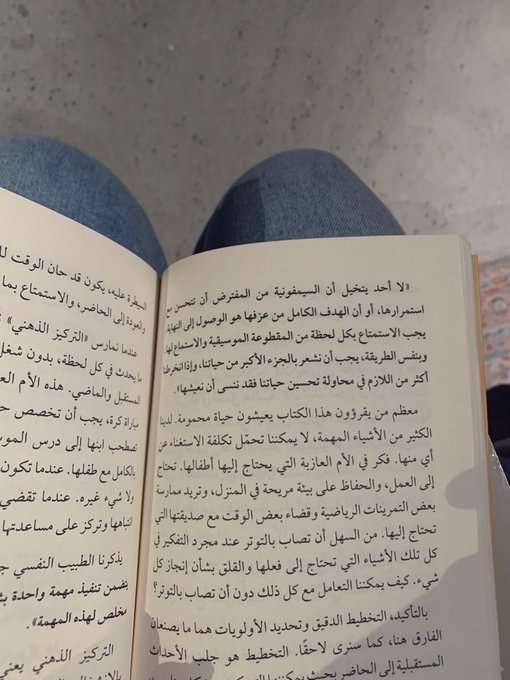 «لا أحد يتخيل أن السيمفونية من المفترض أن تتحسن مع
استمرارها، أو أن الهدف الكامل من عزفها هو الوصول إلى النهاية
يجب الاستمتاع بكل لحظة من المقطوعة الموسيقية والاستماع لها
وبنفس الطريقة، يجب أن نشعر بالجزء الأكبر من حياتنا، وإذا انخرطنا
أكثر من اللازم في محاولة تحسين حياتنا فقد ننسى أن نعيشها».
معظم من يقرؤون هذا الكتاب يعيشون حياة محمومة. لدينا
الكثير من الأشياء المهمة، لا يمكننا تحمّل تكلفة الاستغناء عن
أي منها. فكر في الأم العازبة التي يحتاج إليها أطفالها. تحتاج
إلى العمل، والحفاظ على بيئة مريحة في المنزل، وتريد ممارسة
بعض التمرينات الرياضية وقضاء بعض الوقت مع صديقتها التي
تحتاج إليها. من السهل أن تصاب بالتوتر عند مجرد التفكير في
كل تلك الأشياء التي تحتاج إلى فعلها والقلق بشأن إنجاز كل
شيء. كيف يمكننا التعامل مع كل ذلك دون أن نصاب بالتوتر؟
بالتأكيد، التخطيط الدقيق وتحديد الأولويات هما ما يصنعان
الفارق هنا، كما سنرى لاحقًا. التخطيط هو جلب الأحداث
المستقبلية إلى الحاضر بحيث يمكننا
السيطرة عليه، يكون قد حان الوقت
والعودة إلى الحاضر، والاستمتاع بما
عندما نمارس «التركيز الذهني»
ما يحدث في كل لحظة، بدون شغل
المستقبل والماضي. هذه الأم
مباراة كرة، يجب أن تخصص
تصطحب ابنها إلى درس
بالكامل مع طفلها. عندما تكون
ولا شيء غيره. عندما تقضي
انتباهها وتركز على مساعدتها
يذكرنا الطبيب النفسي
يتضمن تنفيذ مهمة واحدة
مخلص لهذه المهمة».
التركيز الذهني يعني